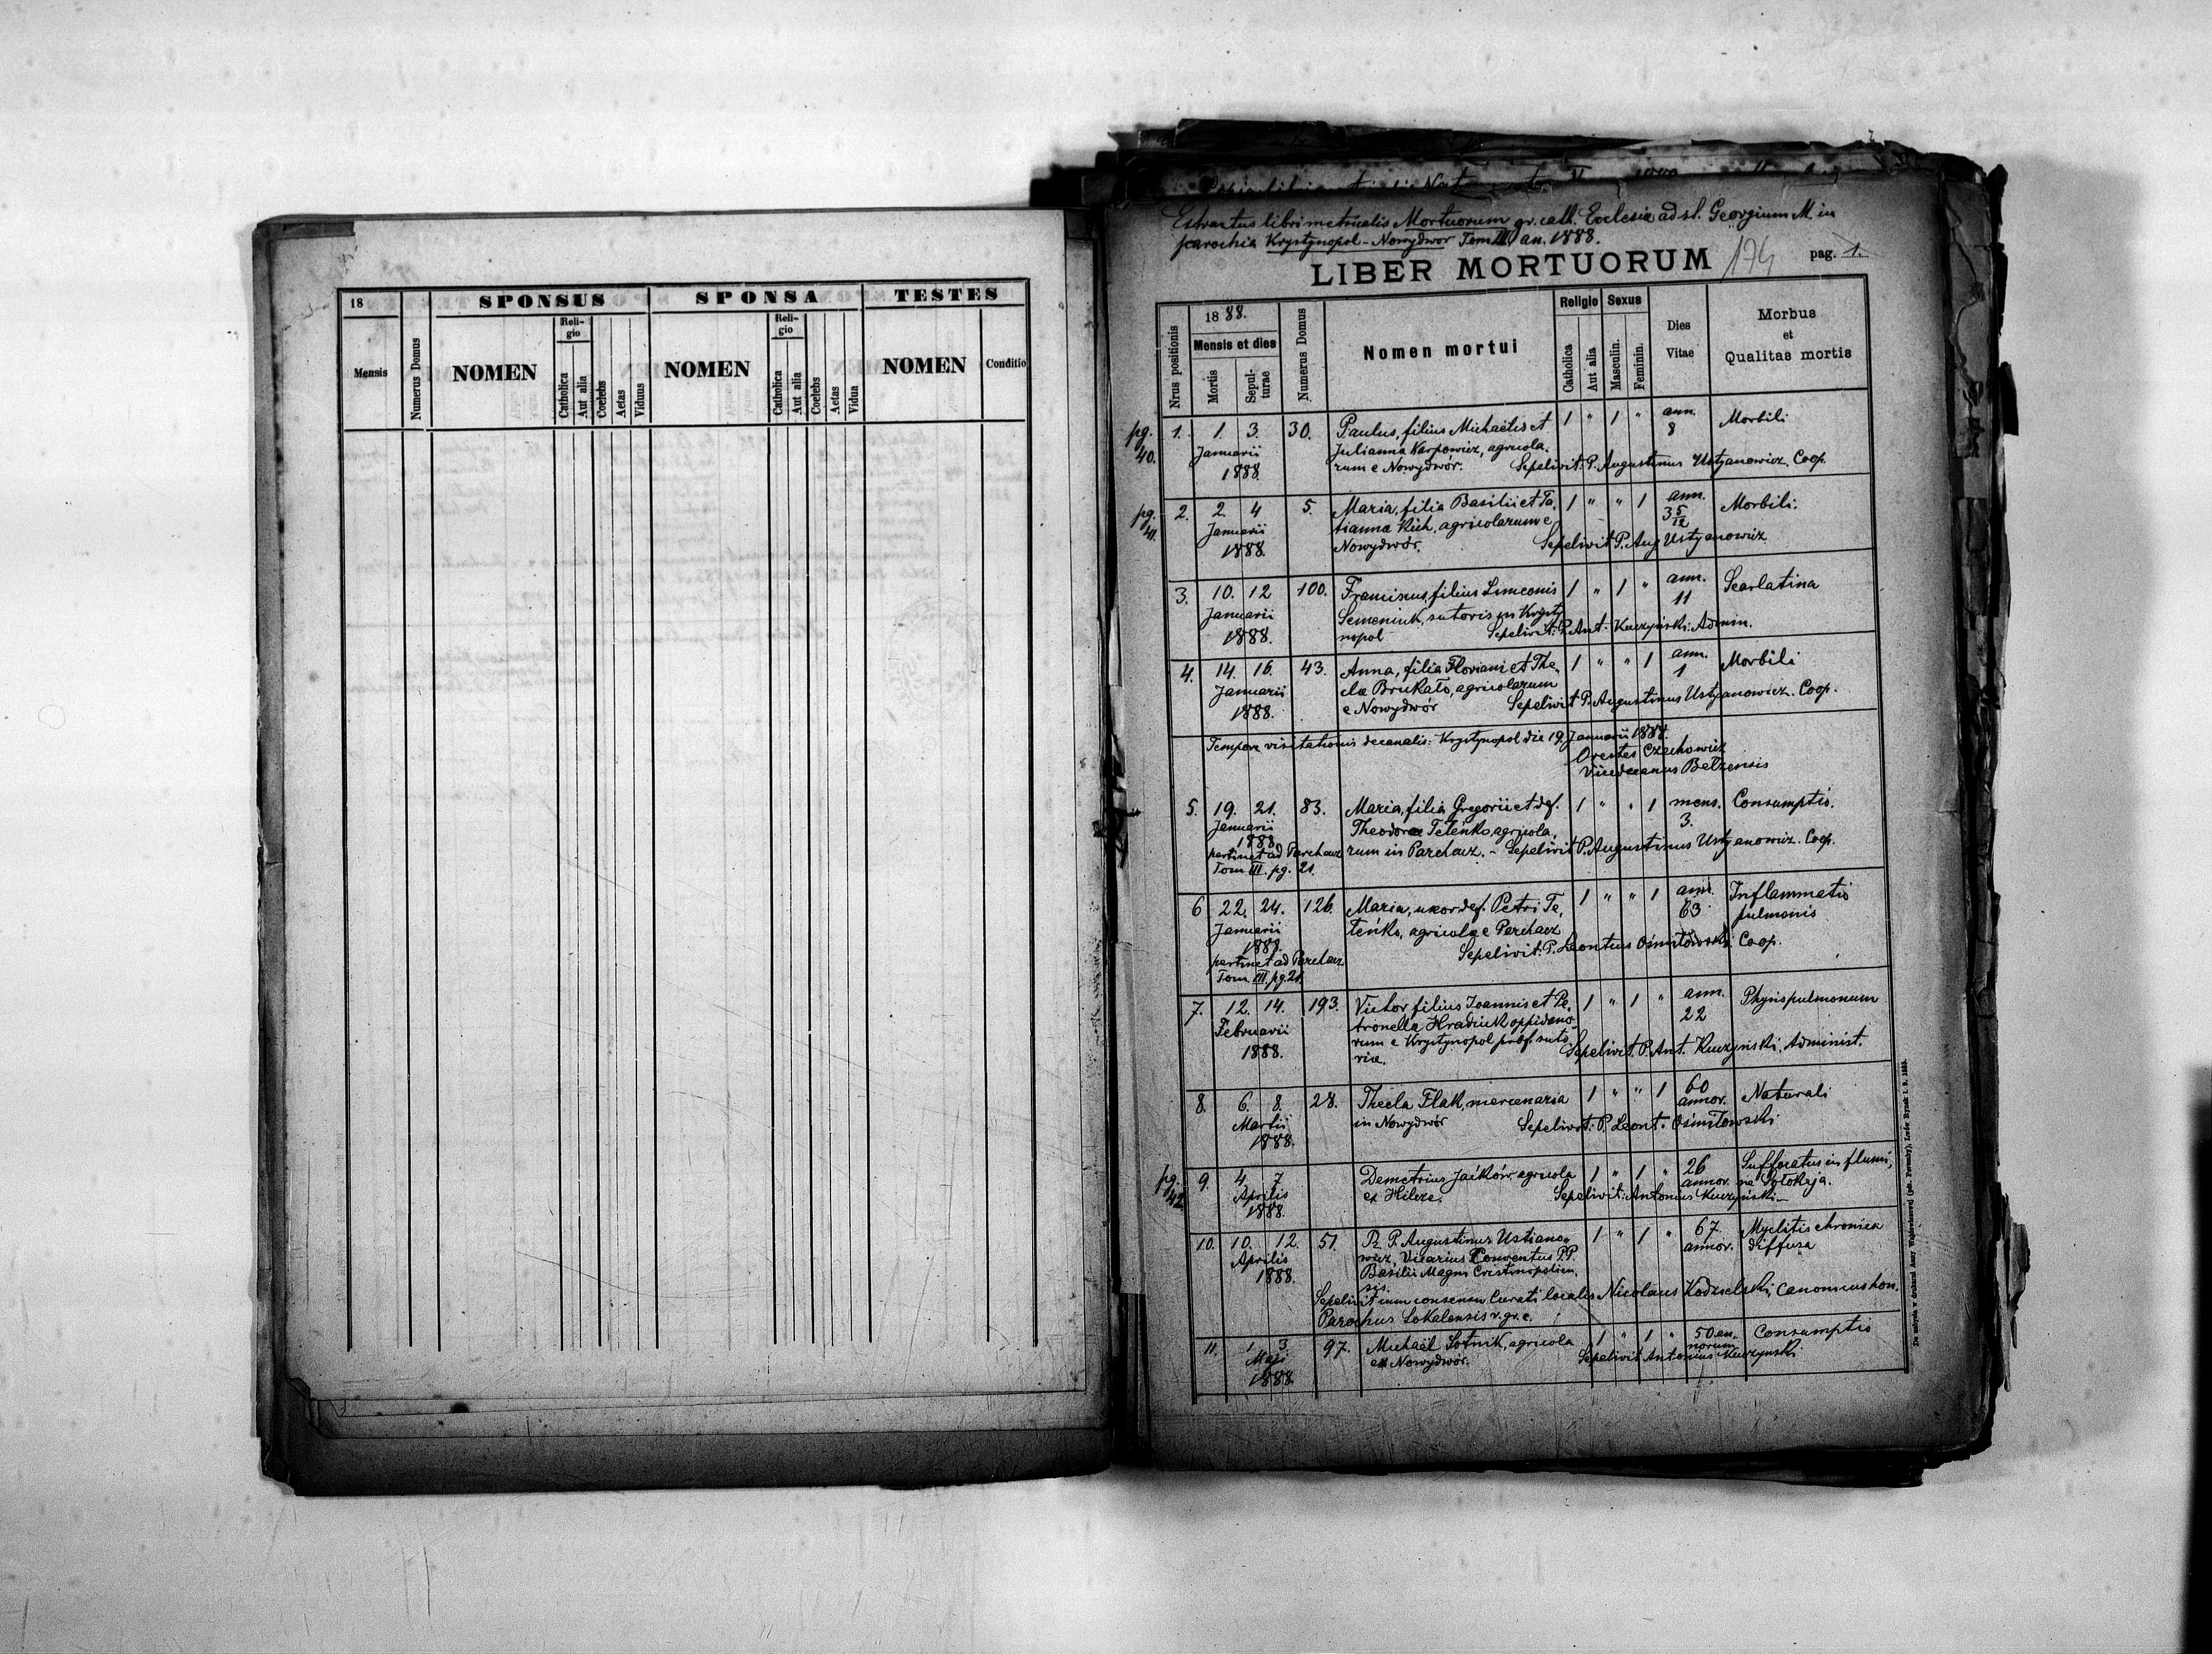 18
SPONSUS SPONSA TESTES
Mensis
Numerus Domus
NOMEN
Religio
Catholica
Aut alia
Coelebs
Aetas
Viduus
NOMEN
Religio
Catholica
Aut alia
Coelebs
Aetas
Vidua
NOMEN
Conditio
Extractus libri metricalis Mortuorum gr. cath. Ecclesia ad st. Georgium M. in
parochia Krystynopol - Nowydwor Tom III an. 1888.
LIBER MORTUORUM 174 pag. 1.
Nrus positionis
18 88.
Mensis et dies
Mortis
Sepulturae
Numerus Domus
Nomen mortui
Religio
Catholica
Aut alia
Sexus
Masculin.
Feminin.
Dies
Vitae
Morbus
et
Qualitas mortis
pg. 40. 1. 1. 3. 30. Paulus, filius Michaelis et 1 " 1 " ann. 8 Morbili
Januarii Julianna Karpowicz, agricola-
1888. rum e Nowydwór. Sepelivit: P. Augustinus Ustyanowicz. Coop.
pg. 41. 2. 2. 4 5. Maria, filia Basilii et Ta- 1 " " 1 ann. 3 5/12 Morbili.
Januarii tianna Kich, agricolarum e
1888. Nowydwór. Sepelivit P. Aug Ustyanowicz
3. 10. 12 100. Franciscus, filius Simeonis 1 " 1 " ann. 11 Scarlatina
Januarii Semeniuk, sutoris in Krysty
1888. nopol Sepelivit: P. Ant. Kuczyński: Admin.
4. 14. 16. 43. Anna, filia Floriani et The- 1 " " 1 ann. 1 Morbili
Januarii clae Brukało, agricolarum
1888. e Nowydwór Sepelivit P. Augustinus Ustyanowicz. Coop.
Tempore visitationis decanalis: Krystynopol die 19 Januarii 1888.
Orestes Czechowicz
Vicedecanus Bełzensis
5. 19. 21. 83. Maria, filia Gregorii et def. 1 " " 1 mens. 3. Consumptio.
Januarii Theodorae Teleńko, agricola-
1888
pertinet ad Parchacz rum in Parchacz. - Sepelivit P. Augustinus Ustyanowicz. Coop.
Tom III. pg. 21.
6 22. 24. 126. Maria, uxor def. Petri Te- 1 " " 1 ann. 63 Inflammatio
Januarii leńko, agricolae Parchacz pulmonis
1888. Sepelivit: P. Leontius Ośmiłowski. Coop.
pertinet ad Parchacz
Tom III. pg. 21
7. 12. 14. 193. Victor filius Joannis et Pe- 1 " 1 " ann. 22 Phtysis pulmonum
Februarii tronella Hradiuk oppidano-
1888. rum e Krystynopol prof. suto
riae. Sepelivit. P. Ant. Kuczyński. Administ.
8. 6. 8. 28. Thecla Flak, mercenaria 1 " " 1 60 annor. Naturali
Martii in Nowydwór Sepelivit: P. Leont. Ośmiłowski
1888.
pg. 42 9. 4. 7 Demetrius Jaćków agricola 1 " 1 " 26 annor. Suffocatus in flumi-
Aprilis ex Hilcze. Sepelivit: Antonius Kuczyński - ne Sołokaja.
1888.
10. 10. 12. 51. P. Augustinus Ustiano- 1 " 1 " 67. annor. Myelitis chronica
Aprilis wicz, Vicarius Conventus P.P. diffusa
1888. Basilii Magni Cristinopolien-
sis.
Sepelivit cum consensu Curati localis Nicolaus Kodzielski, Canonicus hon.
Parochus Sokalensis r. gr. c.
11. 1. 3. 97. Michaël Sotnik, agricola 1 " 1 " 50 an- Consumptio
Maji ex Nowydwor. norum
1888. Sepelivit Antonius Kuczyński